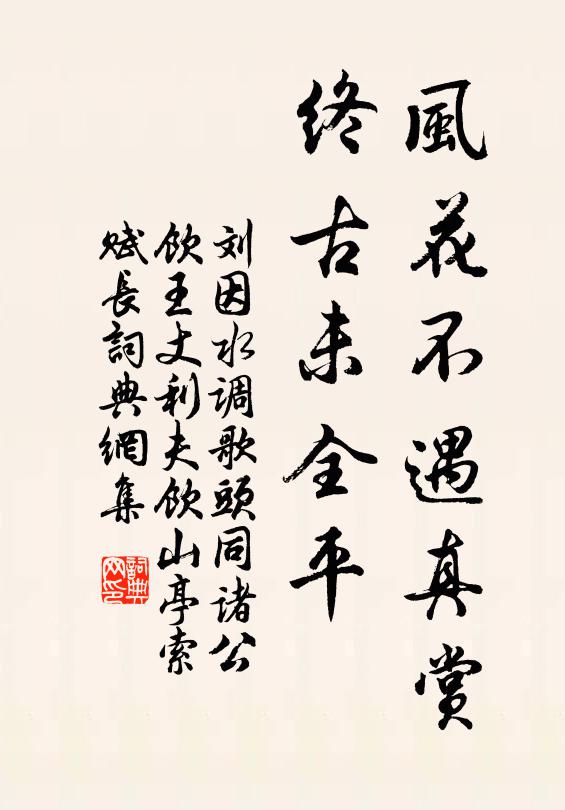 風花不遇真赏
终古未全平
刘因水调歌頭同诸公
饮王丈利夫饮山亭索
赋長詞典網集
詞典网印